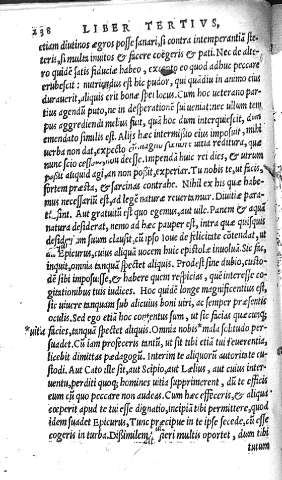 298 LIBER TERTIVS,
etiam diutinos ægros posse sanari, si contra intemperantiā ste-
teris, si multa inuitos & facere coëgeris & pati. Nec de alte-
ro quidē satis fiduciæ habeo, eo quod adhuc peccare
erubescit: nutriendus est hic pudor, qui quādiu in animo eius
durauerit, aliquis erit bonæ spei locus. Cum hoc veterano par-
tius agendū puto, ne in desperationē sui ueniat: nec ullum tem-
pus aggrediendi melius fuit, quā hoc dum interquiescit, dum
emendato similis est. Alijs hæc intermissio eius imposuit, mihi
verba non dat, expecto cum magno fœnore uitia reditura, quæ
nunc scio cessare, non deesse. Impendā huic rei dies, & utrum
possit aliquid agi, an non possit, experiar. Tu nobis te, ut facis,
fortem præsta, & sarcinas contrahe. Nihil ex his quæ habe-
mus necessariū est, ad legē naturæ reuertamur. Diuitiæ para-
tæ sint. Aut gratuitū est quo egemus, aut uile. Panem & aquā
natura desiderat, nemo ad hæc pauper est, intra quæ quisquis
desiderium suum clausit, cū ipso Ioue de fœlicitate cōtendat, ut
Epicurus, cuius aliquā uocem huic epistolæ inuoluā. Sic fac,
inquit, omnia tanquā spectet aliquis. Prodest sine dubio, custo-
dē sibi imposuisse, & habere quem respicias, quē interesse co-
gitationibus tuis iudices. Hoc quidē longe magnificentius est,
sic uiuere tanquam sub alicuius boni uiri, ac semper præsentis
oculis. Sed ego etiā hoc contentus sum, ut sic facias quæcunq;
facies, tanquā spectet aliquis. Omnia nobis mala solitudo per-
suadet. Cū iam profeceris tantū, ut sit tibi etiā tui reuerentia,
licebit dimittas pædagogū. Interim te aliquorū autoritate cu-
stodi. Aut Cato ille sit, aut Scipio, aut Lælius, aut cuius inter-
uentu, perditi quoq; homines uitia supprimerent, dū te efficis
eum cū quo peccare non audeas. Cum hæc effeceris, & aliqua
cœperit apud te tui esse dignatio, incipiā tibi permittere, quod
idem suadet Epicurus, Tunc præcipue in te ipse secede, cū esse
cogeris in turba. Dissimilem fieri multis oportet, dum tibi
tutum